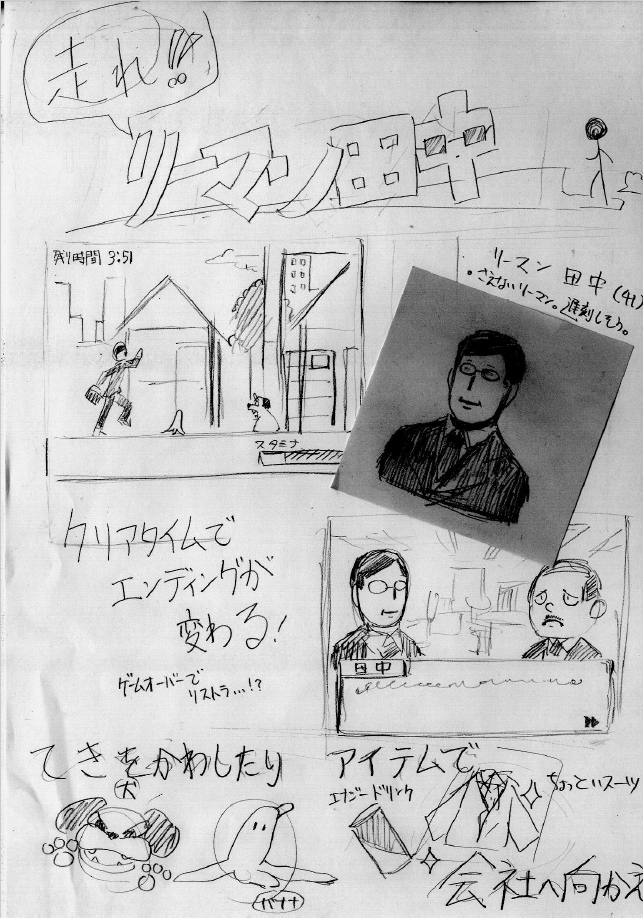 走れ!!
リーマン田中
残り時間 3:51
リーマン 田中 (41)
・さえないリーマン。遅刻しそう。
スタミナ
クリアタイムで
エンディングが
変わる!
ゲームオーバーで
リストラ…!?
田中
てきをかわしたり
犬
バナナ
アイテムで
エナジードリンク
ちょっといースーツ
会社へ向かえ